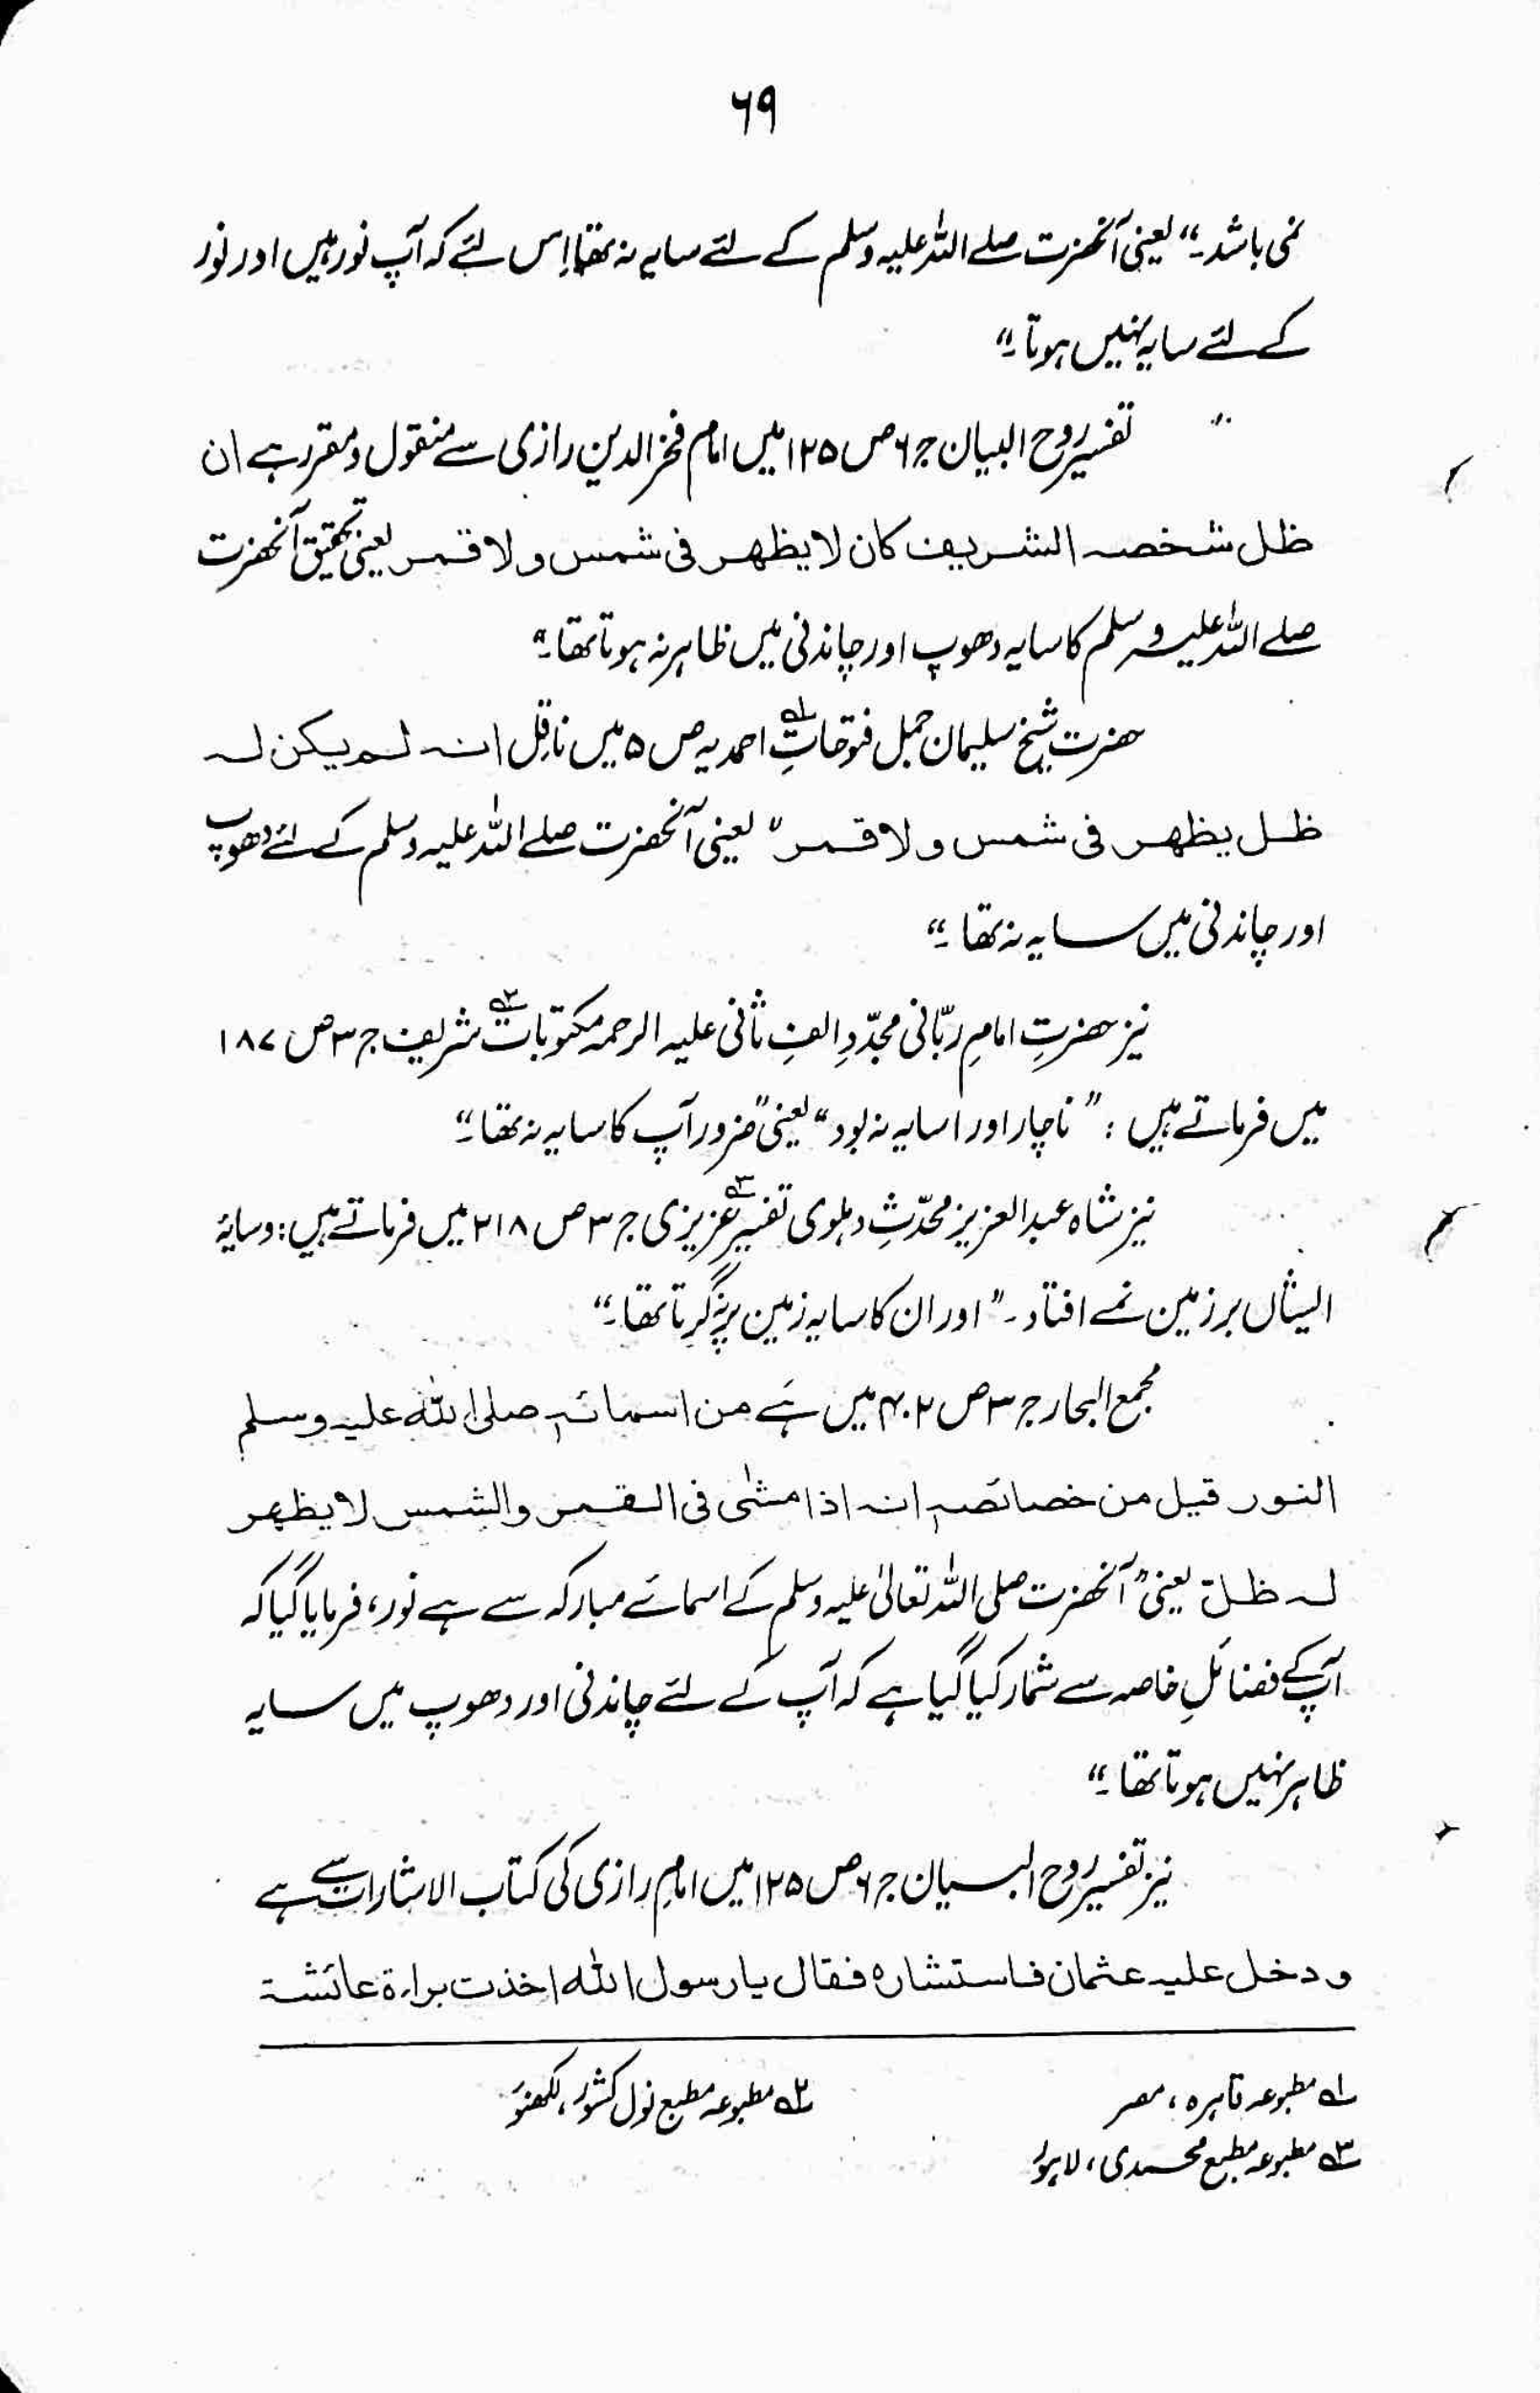 ۶۹
نمی باشد۔“ یعنی آنحضرت صلے اللہ علیہ وسلم کے لئے سایہ نہ تھا اِس لئے کہ آپ نور ہیں اور نور
کے لئے سایہ نہیں ہوتا۔“
تفسیر روح البیان ج ۶ ص ۱۲۵ میں امام فخر الدین رازی سے منقول و مقرر ہے ان
ظل شخصہ الشریف کان لا یظھر فی شمس ولا قمر یعنی تحقیق آنحضرت
صلے اللہ علیہ وسلم کا سایہ دھوپ اور چاندنی میں ظاہر نہ ہوتا تھا۔“
حضرت شیخ سلیمان جمل فتوحاتِ احمدیہ ۱ ص ۵ میں ناقِل انہ لم یکن لہ
ظل یظھر فی شمس ولا قمر“ یعنی آنحضرت صلے اللہ علیہ وسلم کے لئے دھوپ
اور چاندنی میں سایہ نہ تھا۔“
نیز حضرتِ امامِ ربّانی مجدّدِ الفِ ثانی علیہ الرحمہ مکتوبات ۲ شریف ج ۳ ص ۱۸۷
میں فرماتے ہیں : ”ناچار اورا سایہ نہ بود“ یعنی ”ضرور آپ کا سایہ نہ تھا۔“
نیز شاہ عبد العزیز محدّثِ دہلوی تفسیر ۳ عزیزی ج ۳ ص ۲۱۸ میں فرماتے ہیں : وسایۂ
ایشاں بر زمین نمے افتاد۔“ اور ان کا سایہ زمین پر نہ گرتا تھا۔“
مجمع البحار ج ۳ ص ۴۰۲ میں ہَے من اسمائہ صلی اللہ علیہ وسلم
النور قیل من خصائصہ انہ اذا مشٰی فی القمر والشمس لا یظھر
لہ ظل“ یعنی ”آنحضرت صلی اللہ تعالیٰ علیہ وسلم کے اسمائے مبارکہ سے ہے نور، فرمایا گیا کہ
آپ کے فضائلِ خاصہ سے شمار کیا گیا ہے کہ آپ کے لئے چاندنی اور دھوپ میں سایہ
ظاہر نہیں ہوتا تھا۔“
نیز تفسیر روح البیان ج ۶ ص ۱۲۵ میں امام رازی کی کتاب الاشارات سے ہے
و دخل علیہ عثمان فاستشارہ فقال یا رسول اللہ اخذت براءۃ عائشۃ
۱ مطبوعہ قاہرہ ، مصر
۲ مطبوعہ مطبع نول کشور ، لکھنؤ
۳ مطبوعہ مطبع محمدی ، لاہور